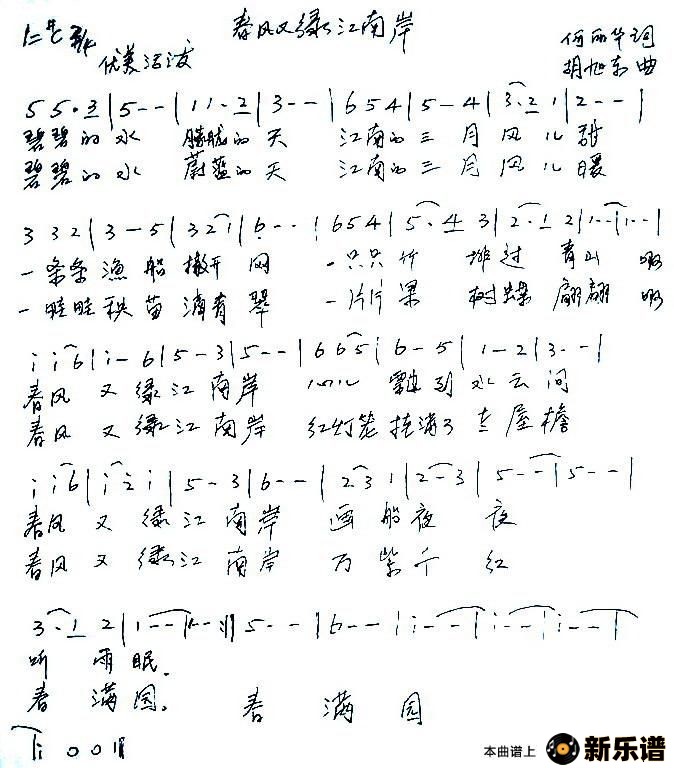 春风又绿江南岸
1=♯C 3/4
优美活泼
何丽华 词
胡旭东 曲
5 5· 3 | 5 - - | 1 1· 2 | 3 - - | 6 5 4 | 5 - 4 | 3· 2 1 | 2 - - |
碧碧的水 朦胧的天 江南的三月风儿甜
碧碧的水 蔚蓝的天 江南的三月风儿暖
3 3 2 | 3 - 5 | 3 2 1 | 6 - - | 6 5 4 | 5· 4 3 | 2· 1 2 | 1 - - | 1 - - |
一条条渔船撒开网 一只只竹排过青山
一畦畦秧苗滴着翠 一片片果树蝶翩翩
i i 6 | i - 6 | 5 - 3 | 5 - - | 6 6 5 | 6 - 5 | 1 - 2 | 3 - - |
春风又绿江南岸 飘到水云间
春风又绿江南岸 红灯笼挂满了 屋檐
i i 6 | i 2 i | 5 - 3 | 6 - - | 2 3 1 | 2 - 3 | 5 - - | 5 - - |
春风又绿江南岸 画船夜夜
春风又绿江南岸 万紫千红
3· 1 2 | 1 - - | 1 - - :|| 5 - - | 6 - - | i - - | i - - | i - - |
听雨眠.
春满园。 春满园
i 0 0 ||
本曲谱上 新乐谱